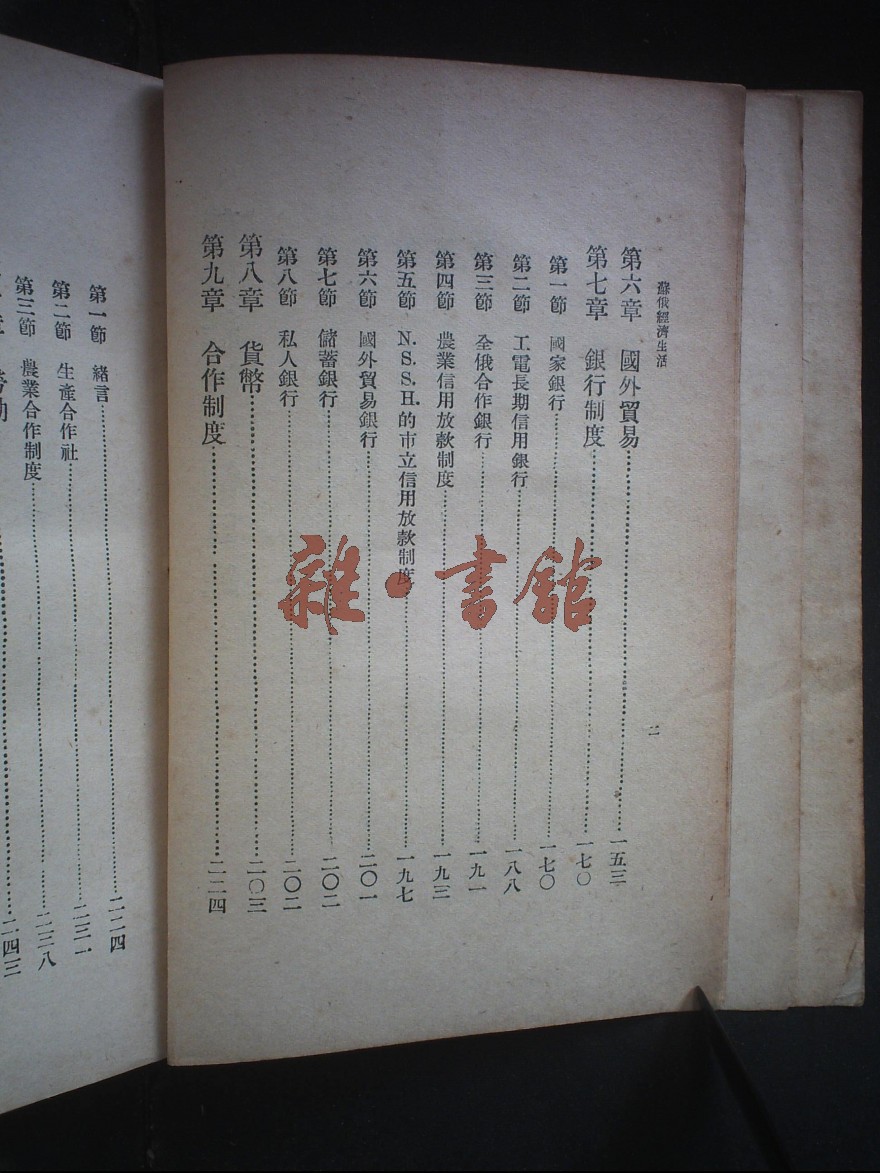 蘇俄經濟生活
二
第六章 國外貿易…………一五三
第七章 銀行制度…………一七〇
第一節 國家銀行…………一七〇
第二節 工電長期信用銀行…………一八八
第三節 全俄合作銀行…………一九一
第四節 農業信用放款制度…………一九三
第五節 N.S.S.H.的市立信用放款制度…………一九七
第六節 國外貿易銀行…………二〇一
第七節 儲蓄銀行…………二〇二
第八節 私人銀行…………二〇二
第八章 貨幣…………二〇三
第九章 合作制度…………二二四
第一節 緒言…………二二四
第二節 生產合作社…………二三一
第三節 農業合作制度…………二三八
二四三
雜·書館